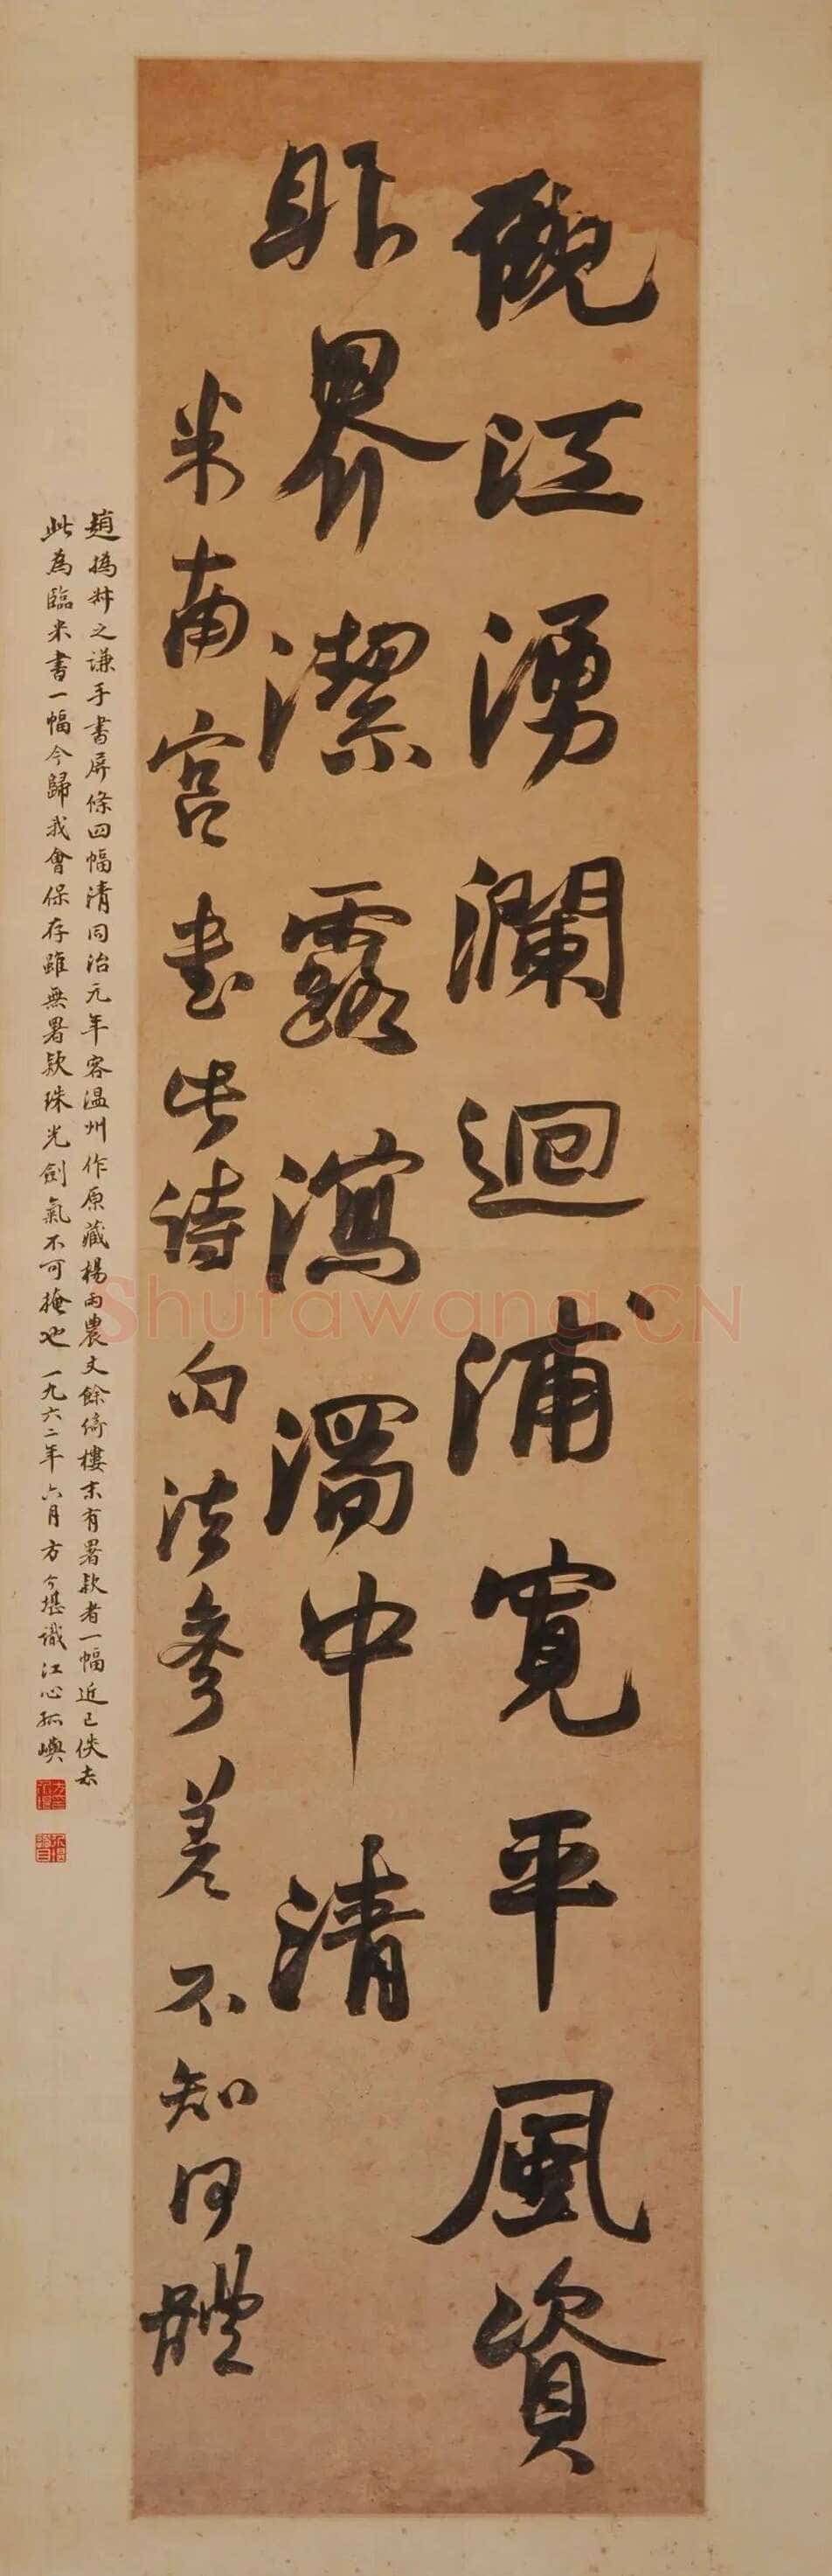 江湧瀾迴浦寬平風資
眎界潔露瀉濁中清
米南宮書此詩句法參差不知何體
趙撝叔之謙手書屏條四幅清同治元年客温州作原藏楊雨農丈餘倚樓末有署款者一幅近已佚去
此為臨米書一幅今歸我會保存雖無署款珠光劍氣不可掩也一九六二年六月方介堪識江心孤嶼
Shufawang.CN